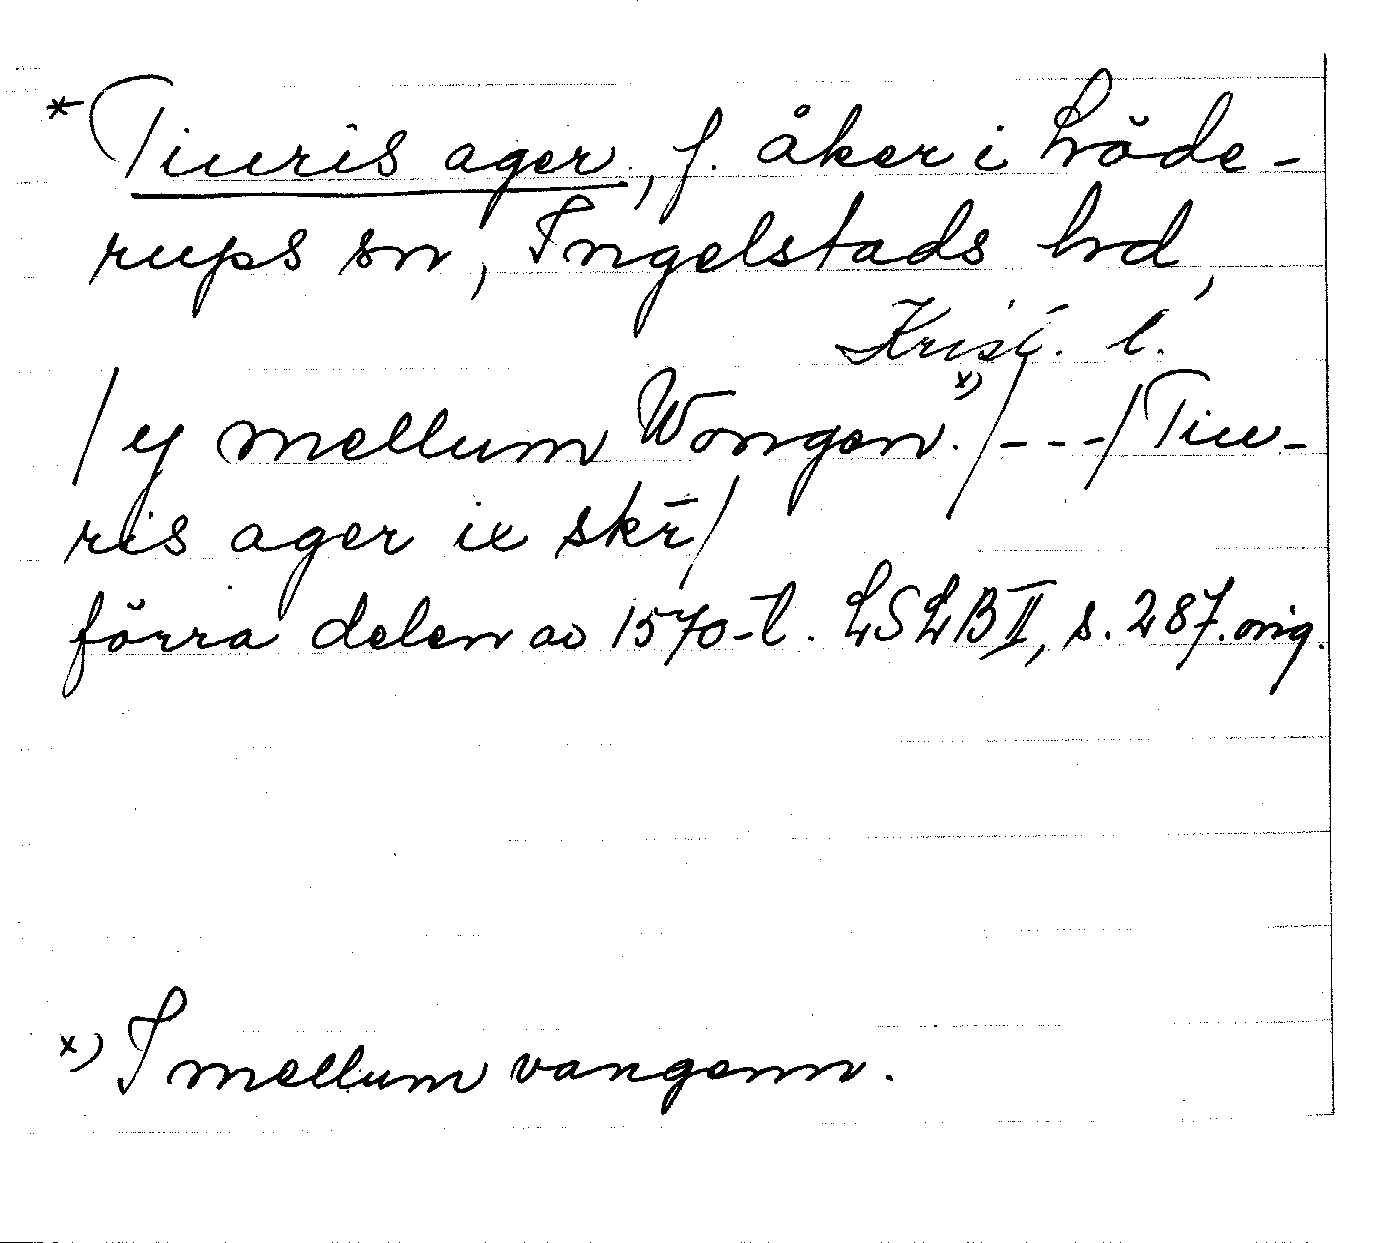 * Tiuris ager, f. åker i Löde-
rups sn, Ingelstads hd,
Krist. l.
/ y mellum Wongen.x) / - - - / Tiu-
ris ager ix skr̄ /
förra delen av 1570-t. LSLB II, s. 287. orig.
x) I mellum vangenn.